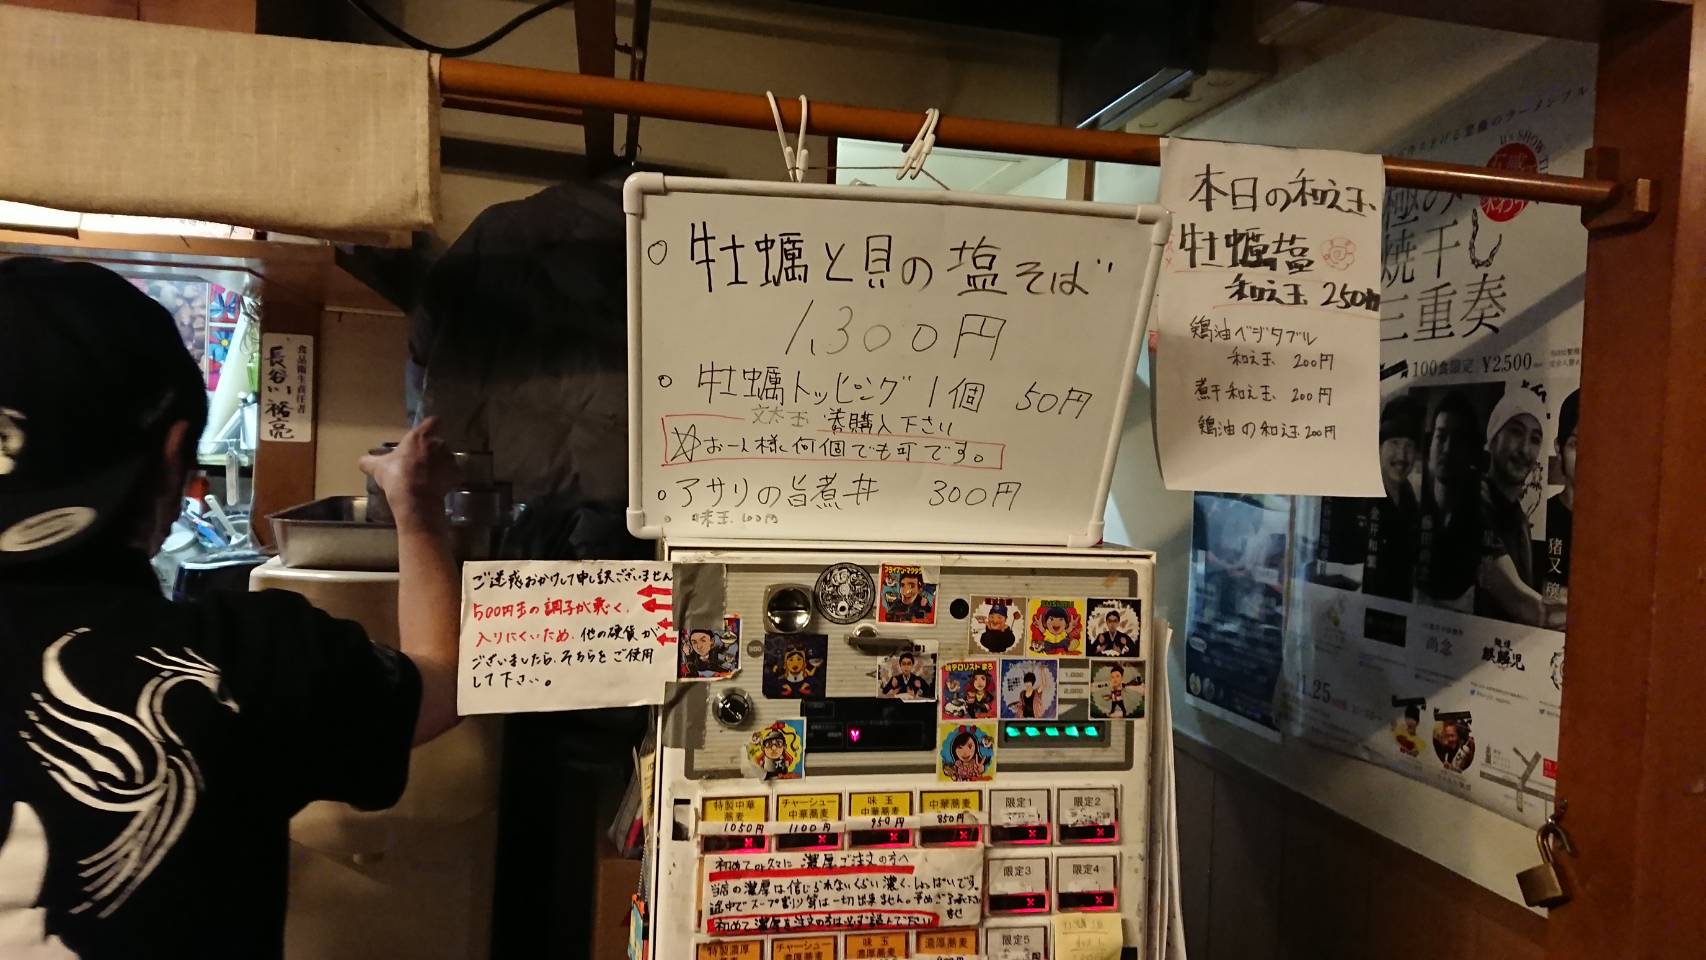 牡蠣と貝の塩そば
1,300円
牡蠣トッピング 1個 50円
購入下さい
☆お一人様何個でも可です。
アサリの旨煮丼 300円
味玉 100円
本日の和え玉
牡蠣塩
和え玉 250円
鶏油ベジタブル
和え玉 200円
煮干和え玉 200円
鶏油の和え玉 200円
食品衛生責任者
長谷川 裕亮
ご迷惑おかけして申し訳ございません
500円玉の調子が悪く、
入りにくいため、他の硬貨が
ございましたら、そちらをご使用
して下さい。
焼干し
三重奏
100食限定 ¥2,500
猪又
尚念
麒麟児
11.25
ブライアン・マクダク
味テロリストまろ
1,000
2,000
特製中華蕎麦
1050円
チャーシュー中華蕎麦
1100円
味玉中華蕎麦
950円
中華蕎麦
850円
限定1
限定2
限定3
限定4
初めてor久々に濃厚ご注文の方へ
当店の濃厚は信じられないくらい濃く、しょっぱいです。
途中でスープ割り等は一切出来ません。予めご了承下さいませ
初めて濃厚を注文の方は必ず読んで下さい
特製濃厚蕎麦
チャーシュー濃厚蕎麦
味玉濃厚蕎麦
濃厚蕎麦
限定5